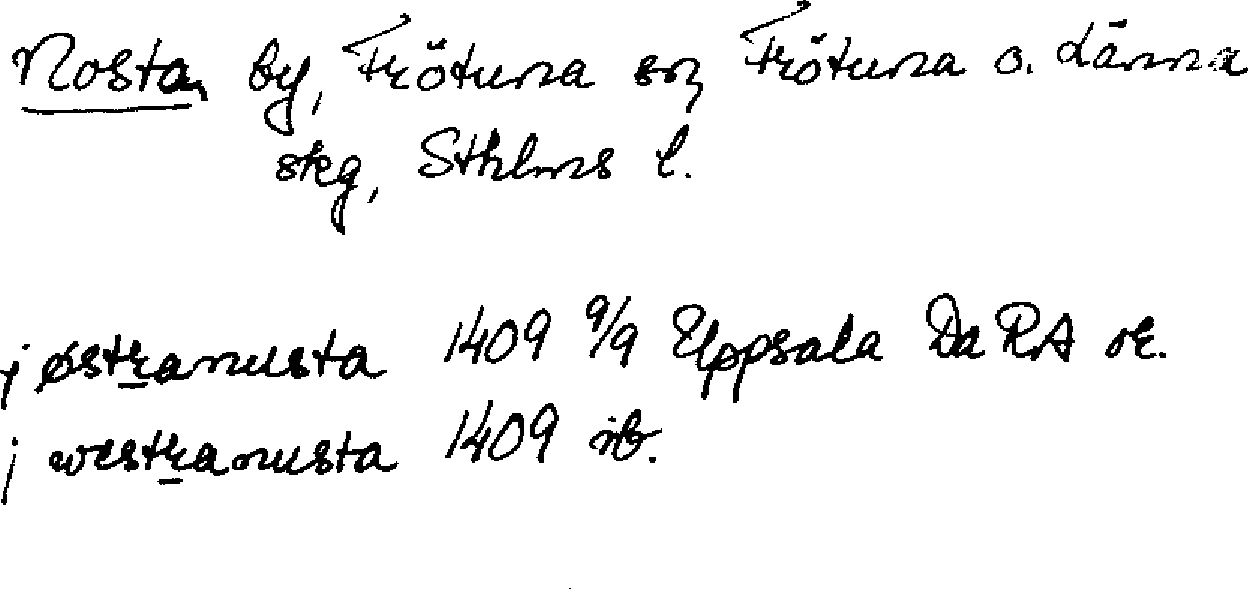 Nosta by, Frötuna sn, Frötuna o. Länna
skg, Sthlms l.
j østranusta 1409 9/9 Uppsala Da RA or.
j westranusta 1409 ib.